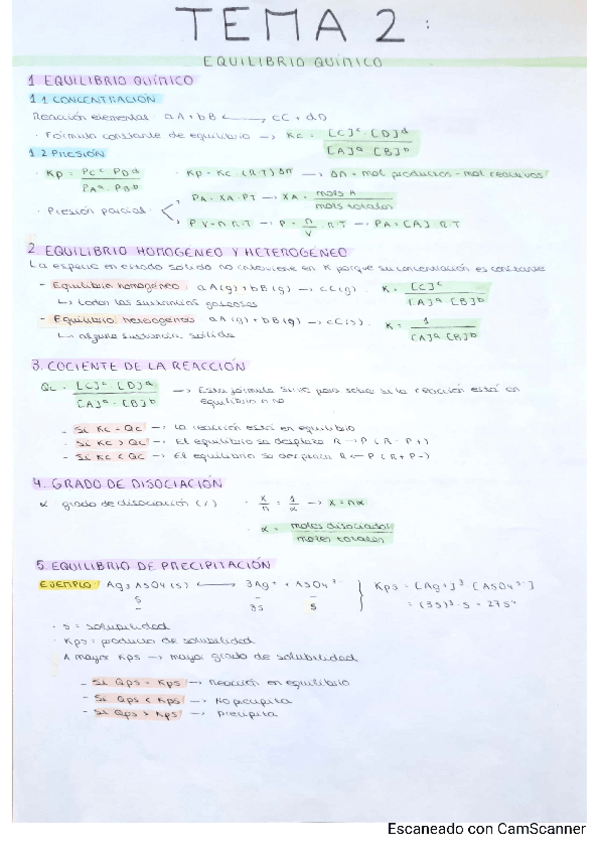 TEMA 2:
EQUILIBRIO QUÍMICO
1 EQUILIBRIO QUÍMICO
1.1 CONCENTRACIÓN
Reacción elemental: aA + bB ⟷ cC + dD
· Fórmula constante de equilibrio → Kc = [C]ᶜ · [D]ᵈ / [A]ᵃ · [B]ᵇ
1.2 PRESIÓN
· Kp = Pcᶜ · PDᵈ / PAᵃ · PBᵇ · Kp = Kc (R·T)Δn → Δn = mol productos - mol reactivos
· Presión parcial
PA = XA · PT → XA = moles A / moles totales
P·V = n·R·T → P = n/V · R·T → PA = [A] · R·T
2. EQUILIBRIO HOMOGÉNEO Y HETEROGÉNEO
La especie en estado sólido no interviene en K porque su concentración es constante
- Equilibrio homogéneo: aA(g) + bB(g) → cC(g). K = [C]ᶜ / [A]ᵃ · [B]ᵇ
↳ todas las sustancias gaseosas
- Equilibrio heterogéneo: aA(g) + bB(g) → cC(s). K = 1 / [A]ᵃ · [B]ᵇ
↳ alguna sustancia sólida
3. COCIENTE DE LA REACCIÓN
Qc = [C]ᶜ · [D]ᵈ / [A]ᵃ · [B]ᵇ → Esta fórmula sirve para saber si la reacción está en
equilibrio o no
- Si Kc = Qc → La reacción está en equilibrio
- Si Kc > Qc → El equilibrio se desplaza R → P (R- P+)
- Si Kc < Qc → El equilibrio se desplaza R ← P (R+ P-)
4. GRADO DE DISOCIACIÓN
α = grado de disociación (%) · X/n = 1/α → X = nα
· α = moles disociados / moles totales
5. EQUILIBRIO DE PRECIPITACIÓN
EJEMPLO: Ag₃AsO₄(s) ⟷ 3Ag⁺ + AsO₄³⁻ } Kps = [Ag+]³ · [AsO4³⁻]
s - -
- 3s s = (3s)³ · s = 27s⁴
· s = solubilidad
· Kps = producto de solubilidad
A mayor Kps → mayor grado de solubilidad
- Si Qps = Kps → Reacción en equilibrio
- Si Qps < Kps → No precipita
- Si Qps > Kps → Precipita
Escaneado con CamScanner